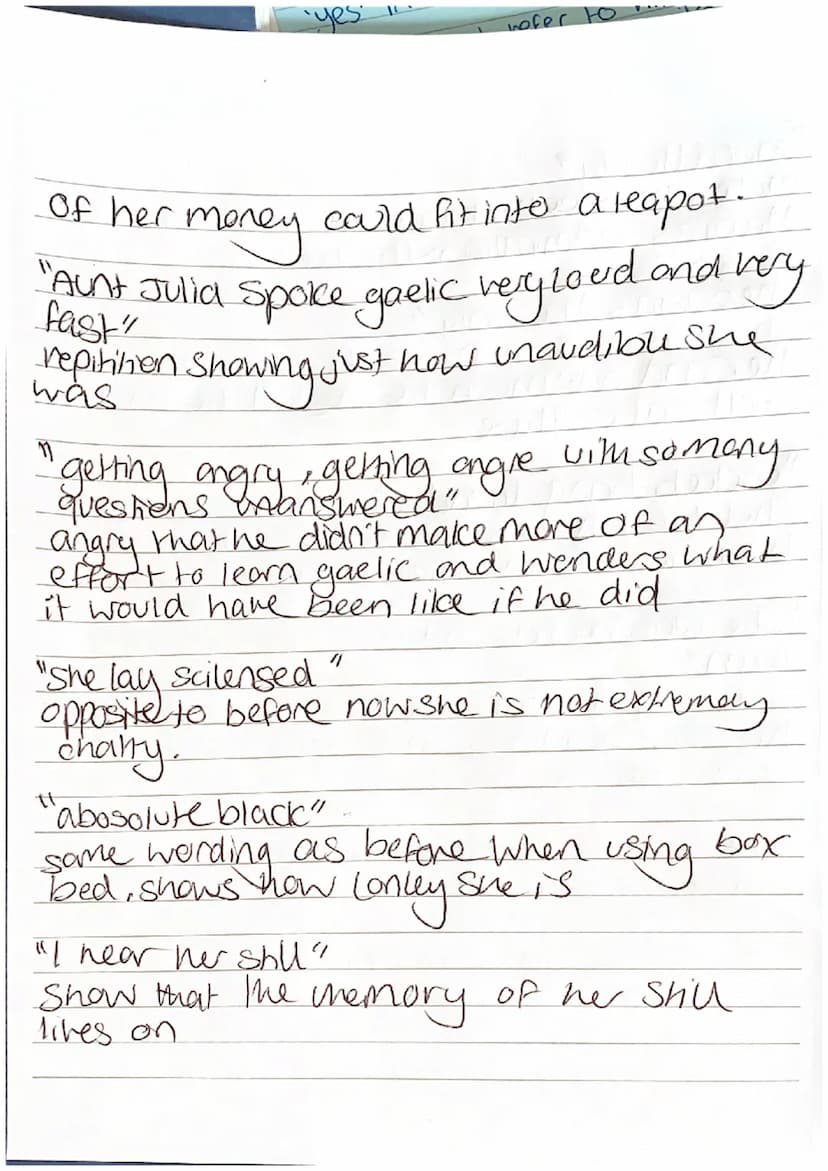 'yes'
refer to
of her money could fit into a teapot.
"Aunt Julia Spoke gaelic very loud and very
fast"
repitition showing just how unaudibou she
was
"getting angry, getting angre with so many
questions unanswered"
angry that he didn't make more of an
effort to learn gaelic and wonders what
it would have been like if he did
"She lay scilensed"
opposite to before now she is not extremaly
chatty.
"abosolute black"
same wording as before when using box
bed, shows how lonley she is
"I hear her still"
Show that the memory of her still
lives on